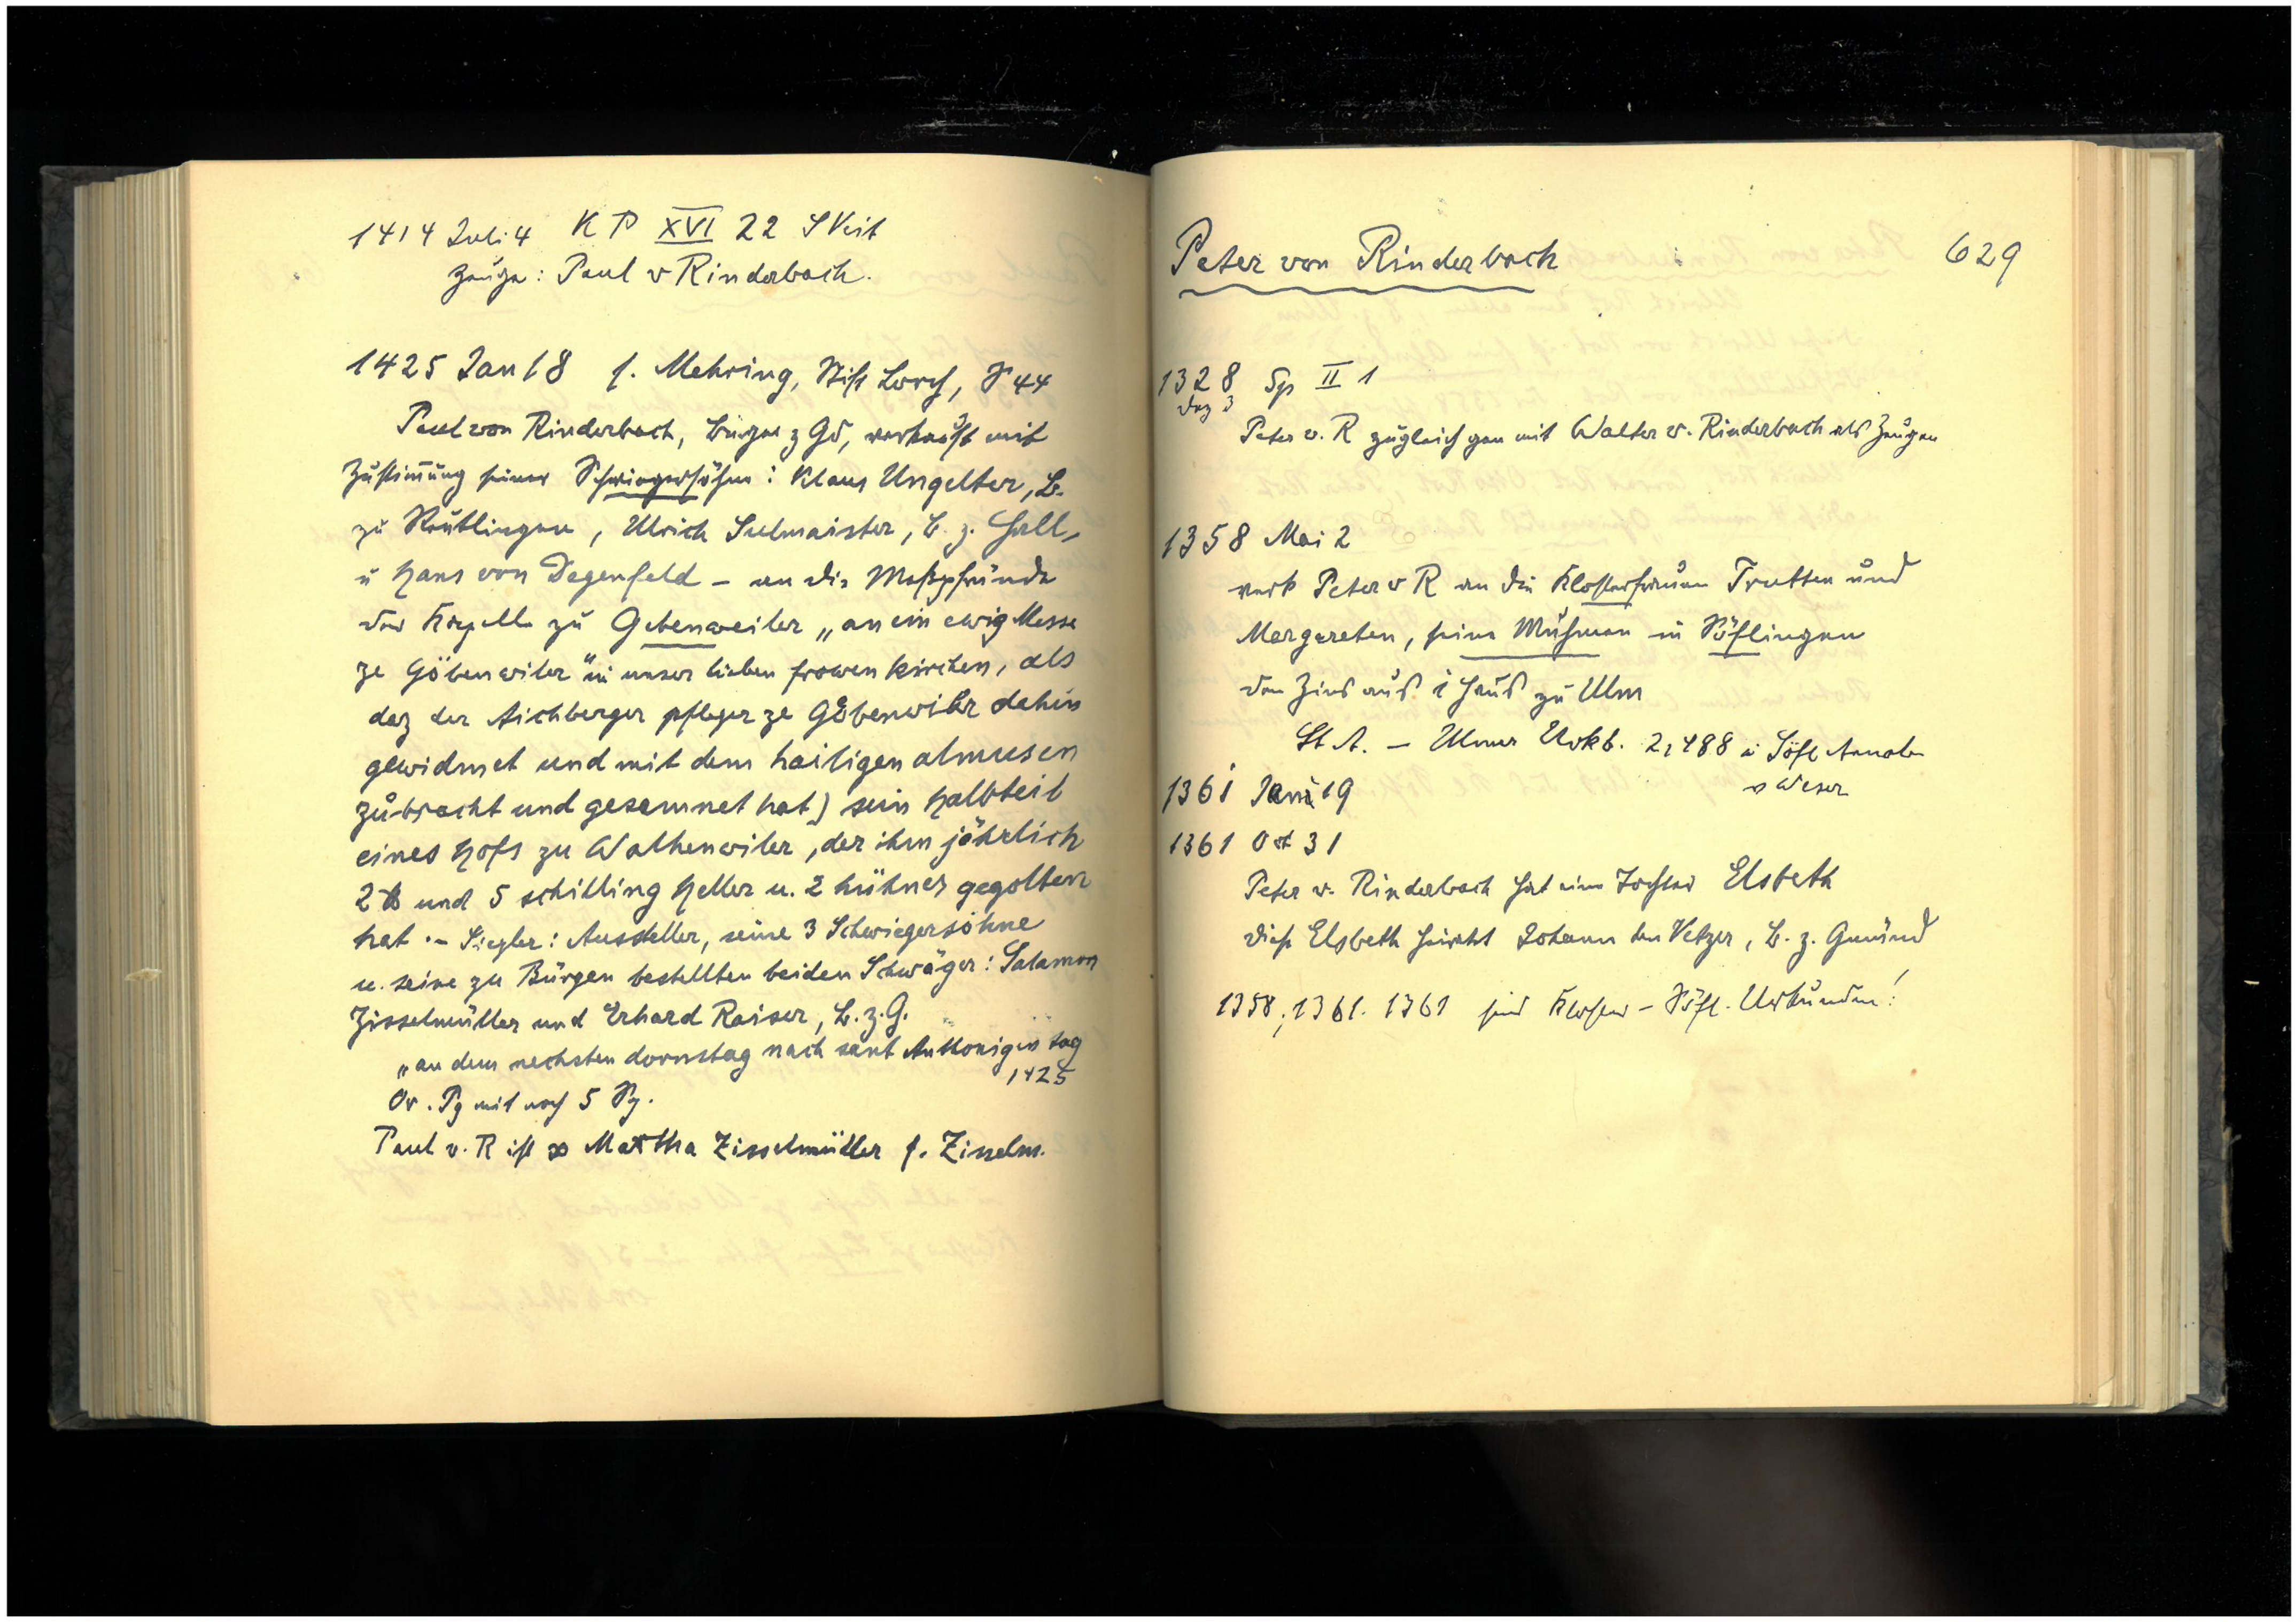 1414 Juli 4 K P XVI 22 S Veit
Zeuge: Paul v Rinderbach.
1425 Jan 18 s. Mehring, Stift Lorch, S 44
Paul von Rinderbach, Bürger z Gd, verkauft mit
Zustimmung seiner Schwiegersöhne: Klaus Ungelter, B.
zu Reutlingen, Ulrich Sulmaister, B. z. Hall,
u Hans von Degenfeld – an die Meßpfründe
der Kapelle zu Gebenweiler „an ein ewig Messe
ze Göbenwiler" in unser lieben frowen kirchen, als
daz der Aichberger pfleger ze Göbenwiler dahin
gewidmet und mit dem hailigen almusen
zůbracht und gesamnet hat) sein Halbteil
eines Hofs zu Walkenwiler, der ihm jährlich
2 ℔ und 5 schilling Heller u. 2 hühner gegolten
hat. – Siegler: Aussteller, seine 3 Schwiegersöhne
u. seine zu Bürgen bestellten beiden Schwäger: Salamon
Zisselmüller und Erhard Raiser, B. z. G.
„an dem nechsten dornstag nach sant Anthonigen tag
1425
Or. Pg mit noch 5 Sg.
Paul v. R ist ∞ Martha Zisselmüller s. Zisselm.
Peter von Rinderbach 629
1328 Sp II 1
Dez 3
Peter v. R zugleich gen mit Walter v. Rinderbach als Zeugen
1358 Mai 2
verk Peter v R an die Klosterfrauen Trutten und
Margareten, seine Muhmen in Söflingen
den Zins aus 1 Haus zu Ulm
St A. – Ulmer Urkb. 2, 488 u Söfl Annalen
v Weser
1361 Juni 19
1361 Okt 31
Peter v. Rinderbach hat eine Tochter Elsbeth
diese Elsbeth heiratet Johann den Vetzer, B. z. Gmünd
1358, 1361. 1361 sind Kloster-Söfl. Urkunden!